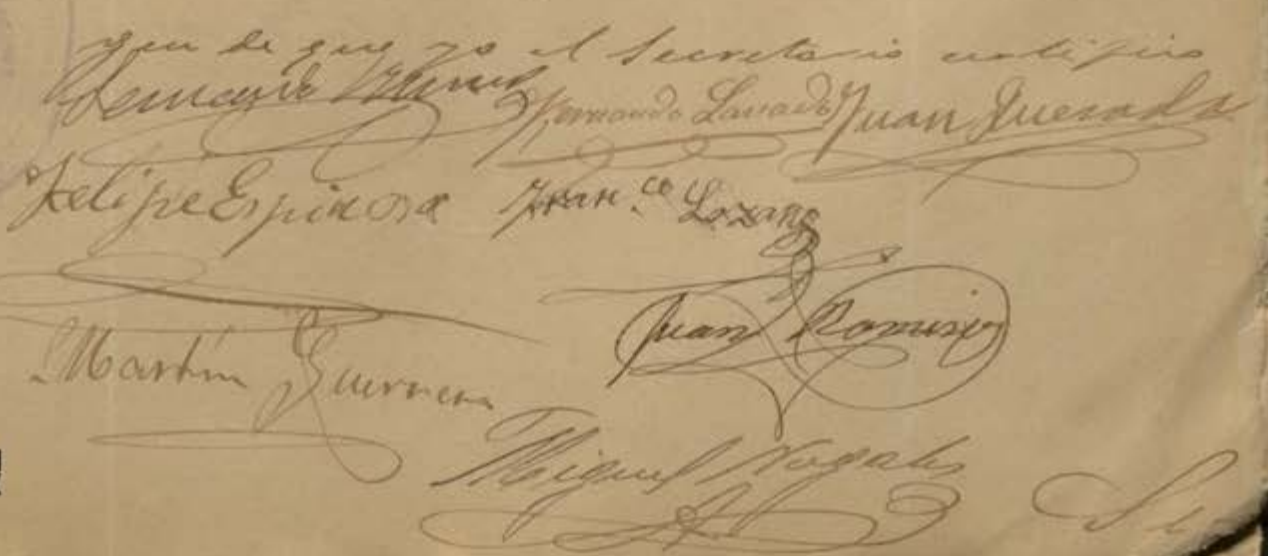 que de que yo el Secretario certifico
Fernando Fernando Lavado Juan Quesada
Felipe Espinosa Fran.co Lozano
Juan Ramirez
Martín Guerrero
Miguel Nogales